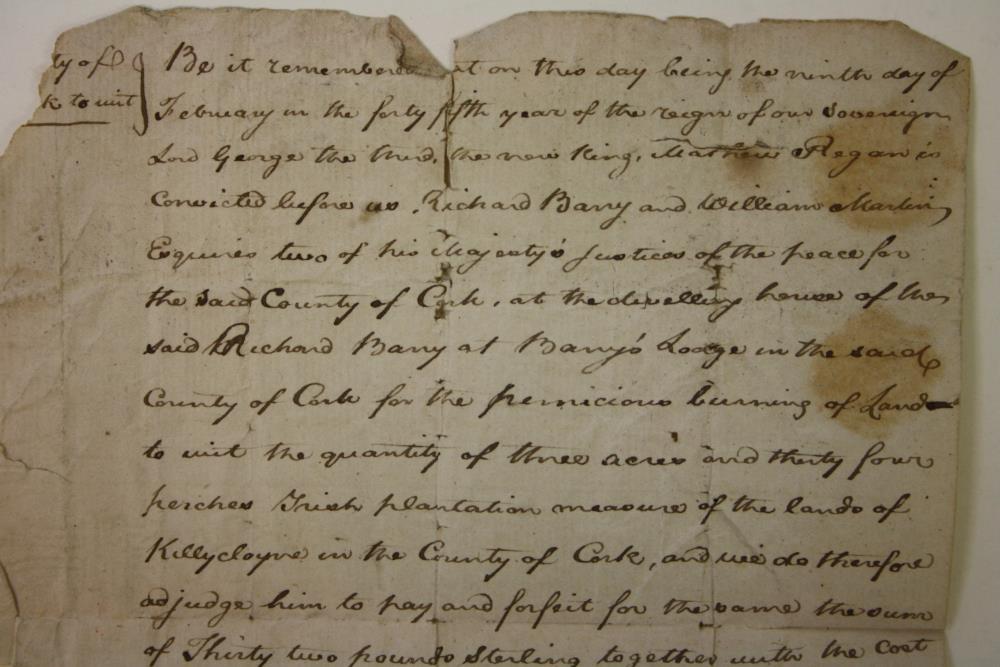 ty of } Be it remembered at on this day being the ninth day of
k to wit February in the forty fifth year of the reign of our Sovereign
Lord George the third, the now King, Mathew Regan is
Convicted before us, Richard Barry and William Martin,
Esquires two of his Majesty's Justices of the peace for
the said County of Cork, at the dwelling house of the
said Richard Barry at Barry's Lodge in the said
County of Cork for the pernicious burning of Land
to wit the quantity of three acres and thirty four
perches Irish plantation measure of the lands of
Killycloyne in the County of Cork, and we do therefore
adjudge him to pay and forfeit for the same the sum
of Thirty two pounds Sterling together with the Cost